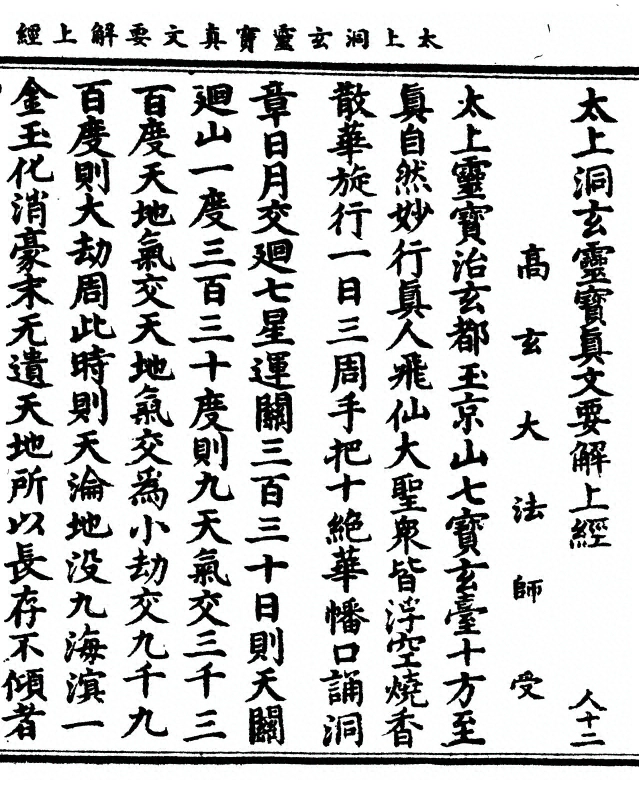 太上洞玄靈寳真文要解上經
太上洞玄靈寳眞文要解上經 人十二
高玄大法師受
太上靈寳治玄都玉京山七寳玄臺十方至
眞自然妙行眞人飛仙大聖衆皆浮空燒香
散華旋行一日三周手把十絶華幡口誦洞
章日月交廻七星運關三百三十日則天關
廻山一度三百三十度則九天氣交三千三
百度天地氣交天地氣交爲小劫交九千九
百度則大劫周此時則天淪地没九海溟一
金玉化消豪末无遺天地所以長存不傾者